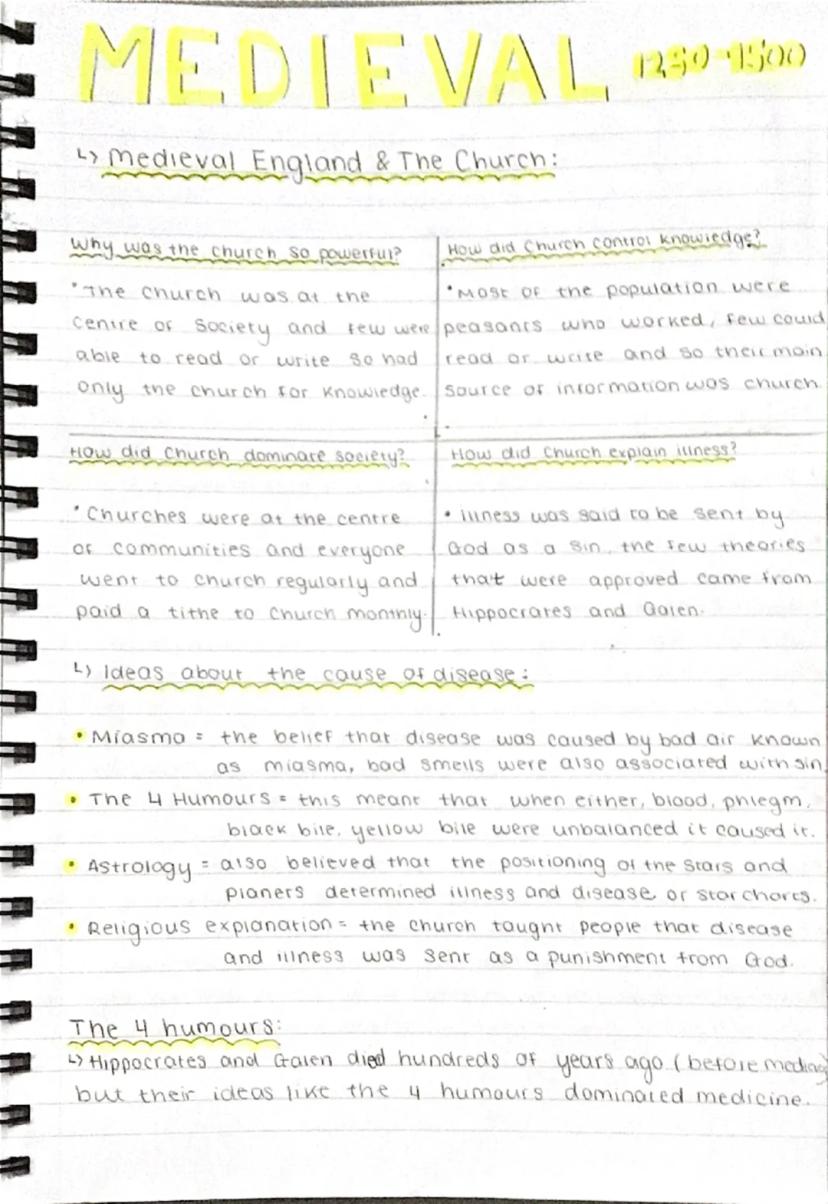 MEDIEVAL 1250-1500
↳ Medieval England & The Church:
Why was the church so powerful?
• The church was at the
centre of society and few were
able to read or write so had
only the church for knowledge.
How did Church control knowledge?
• Most of the population were
peasants who worked, few could
read or write and so their main
source of information was church.
How did Church dominate society?
• Churches were at the centre
of communities and everyone
went to church regularly and
paid a tithe to church monthly.
How did Church explain illness?
• Illness was said to be sent by
God as a sin, the few theories
that were approved came from
Hippocrates and Galen.
↳ Ideas about the cause of disease:
• Miasma = the belief that disease was caused by bad air known
as miasma, bad smells were also associated with sin.
• The 4 Humours = this meant that when either, blood, phlegm,
black bile, yellow bile were unbalanced it caused it.
• Astrology = also believed that the positioning of the stars and
planets determined illness and disease or star charts.
• Religious explanation = the church taught people that disease
and illness was sent as a punishment from God.
The 4 humours:
↳ Hippocrates and Galen died hundreds of years ago (before
but their ideas like the 4 humours dominated medicine.